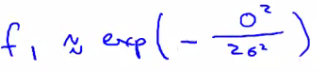 f₁ ≈ exp(- 0²/2σ²)